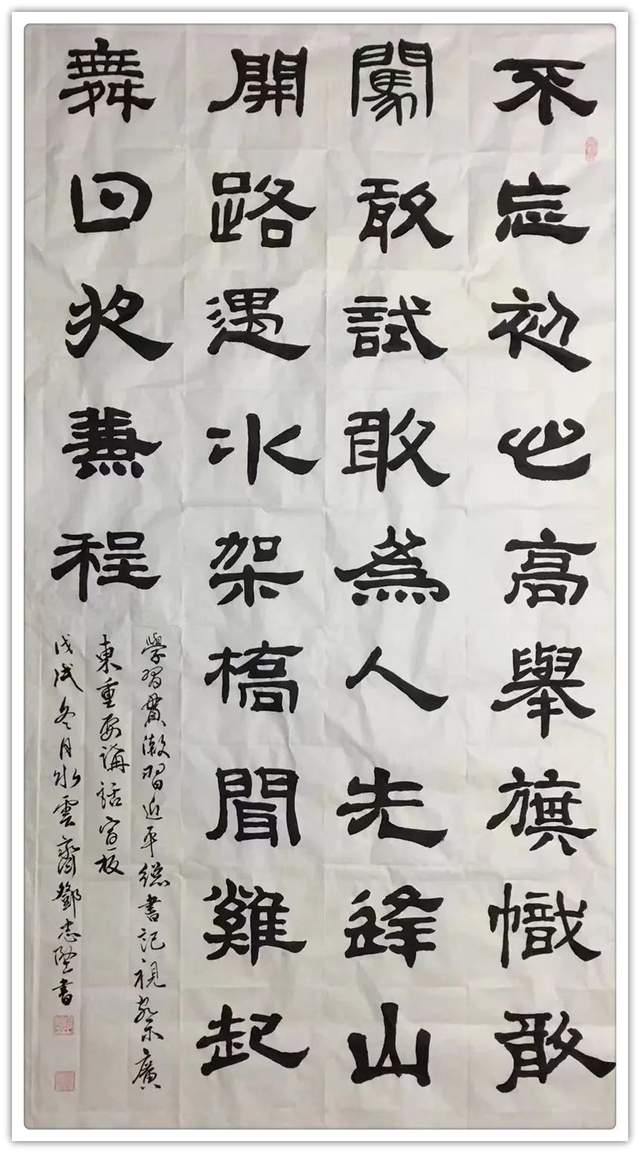 不忘初心高舉旗幟敢
闖敢試敢為人先逢山
開路遇水架橋聞雞起
舞日夜兼程
學習貫澈習近平總書記視察廣
東重要講話宣板
戊戌冬月水雲齋鄧志堅書